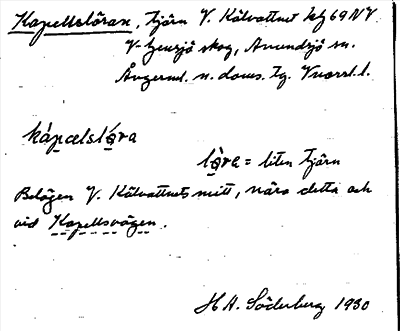 Kapellslöran, tjärn V. Kälvattnet kbl 69 NV
V. Gensjö skog, Anundsjö sn.
Ångerml. n. doms. tg. Vnorrl. l.
kápælslǫra
lǫ̀ra = liten tjärn
Belägen V. Kälvattnets mitt, nära detta och
vid Kapellsvägen.
H A. Söderberg 1930